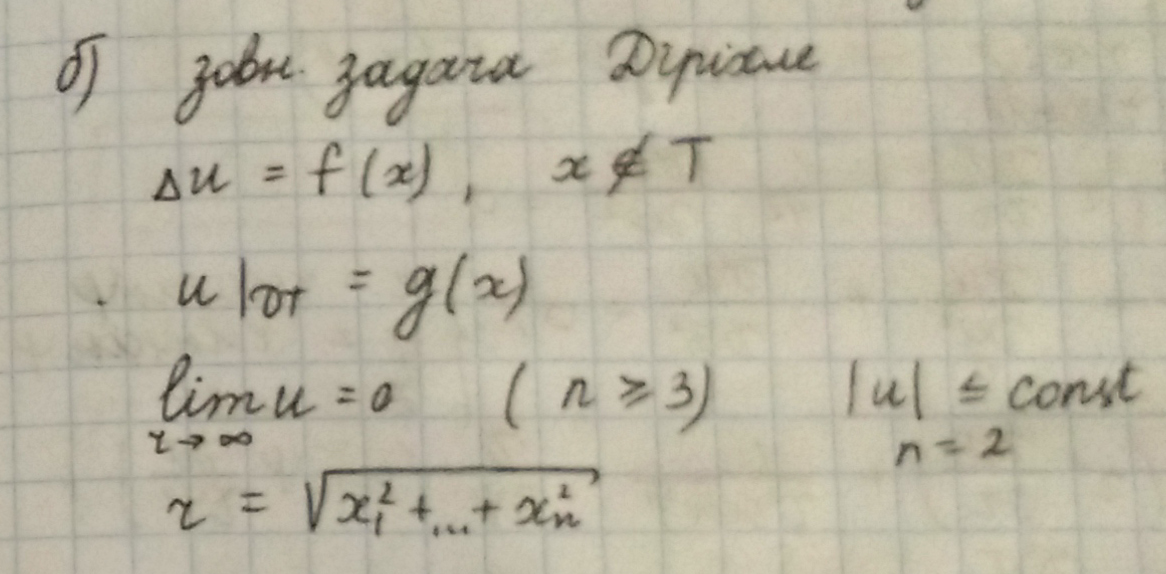 б) зовн. задача Діріхле
Δu = f(x), x ∉ T
u|∂T = g(x)
lim u = 0 (n ≥ 3) |u| ≤ const
r→∞ n = 2
r = √(x₁² + ... + xₙ²)